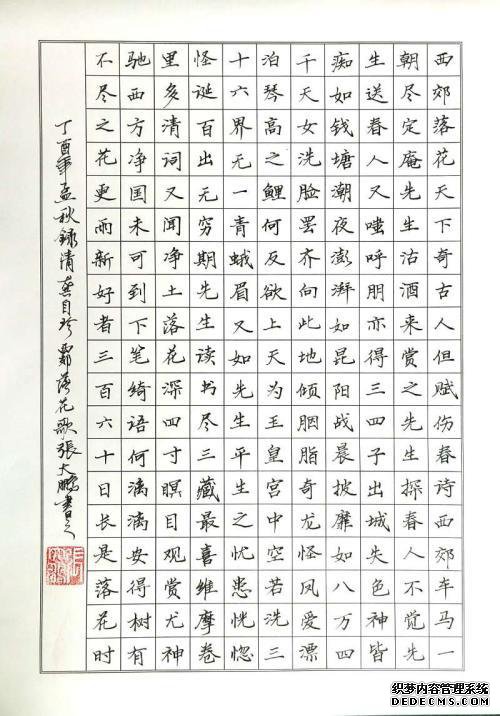 西郊落花天下奇古人但赋伤春诗西郊车马一
朝尽定庵先生沽酒来赏之先生探春人不觉先
生送春人又嗤呼朋亦得三四子出城失色神皆
痴如钱塘潮夜澎湃如昆阳战晨披靡如八万四
千天女洗脸罢齐向此地倾胭脂奇龙怪凤爱漂
泊琴高之鲤何反欲上天为玉皇宫中空若洗三
十六界无一青蛾眉又如先生平生之忧患恍惚
怪诞百出无穷期先生读书尽三藏最喜维摩卷
里多清词又闻净土落花深四寸瞑目观赏尤神
驰西方净国未可到下笔绮语何漓漓安得树有
不尽之花更雨新好者三百六十日长是落花时
丁酉年孟秋録清龚自珍落花歌張大鵬書之
织梦内容管理系统
DEDECMS.COM